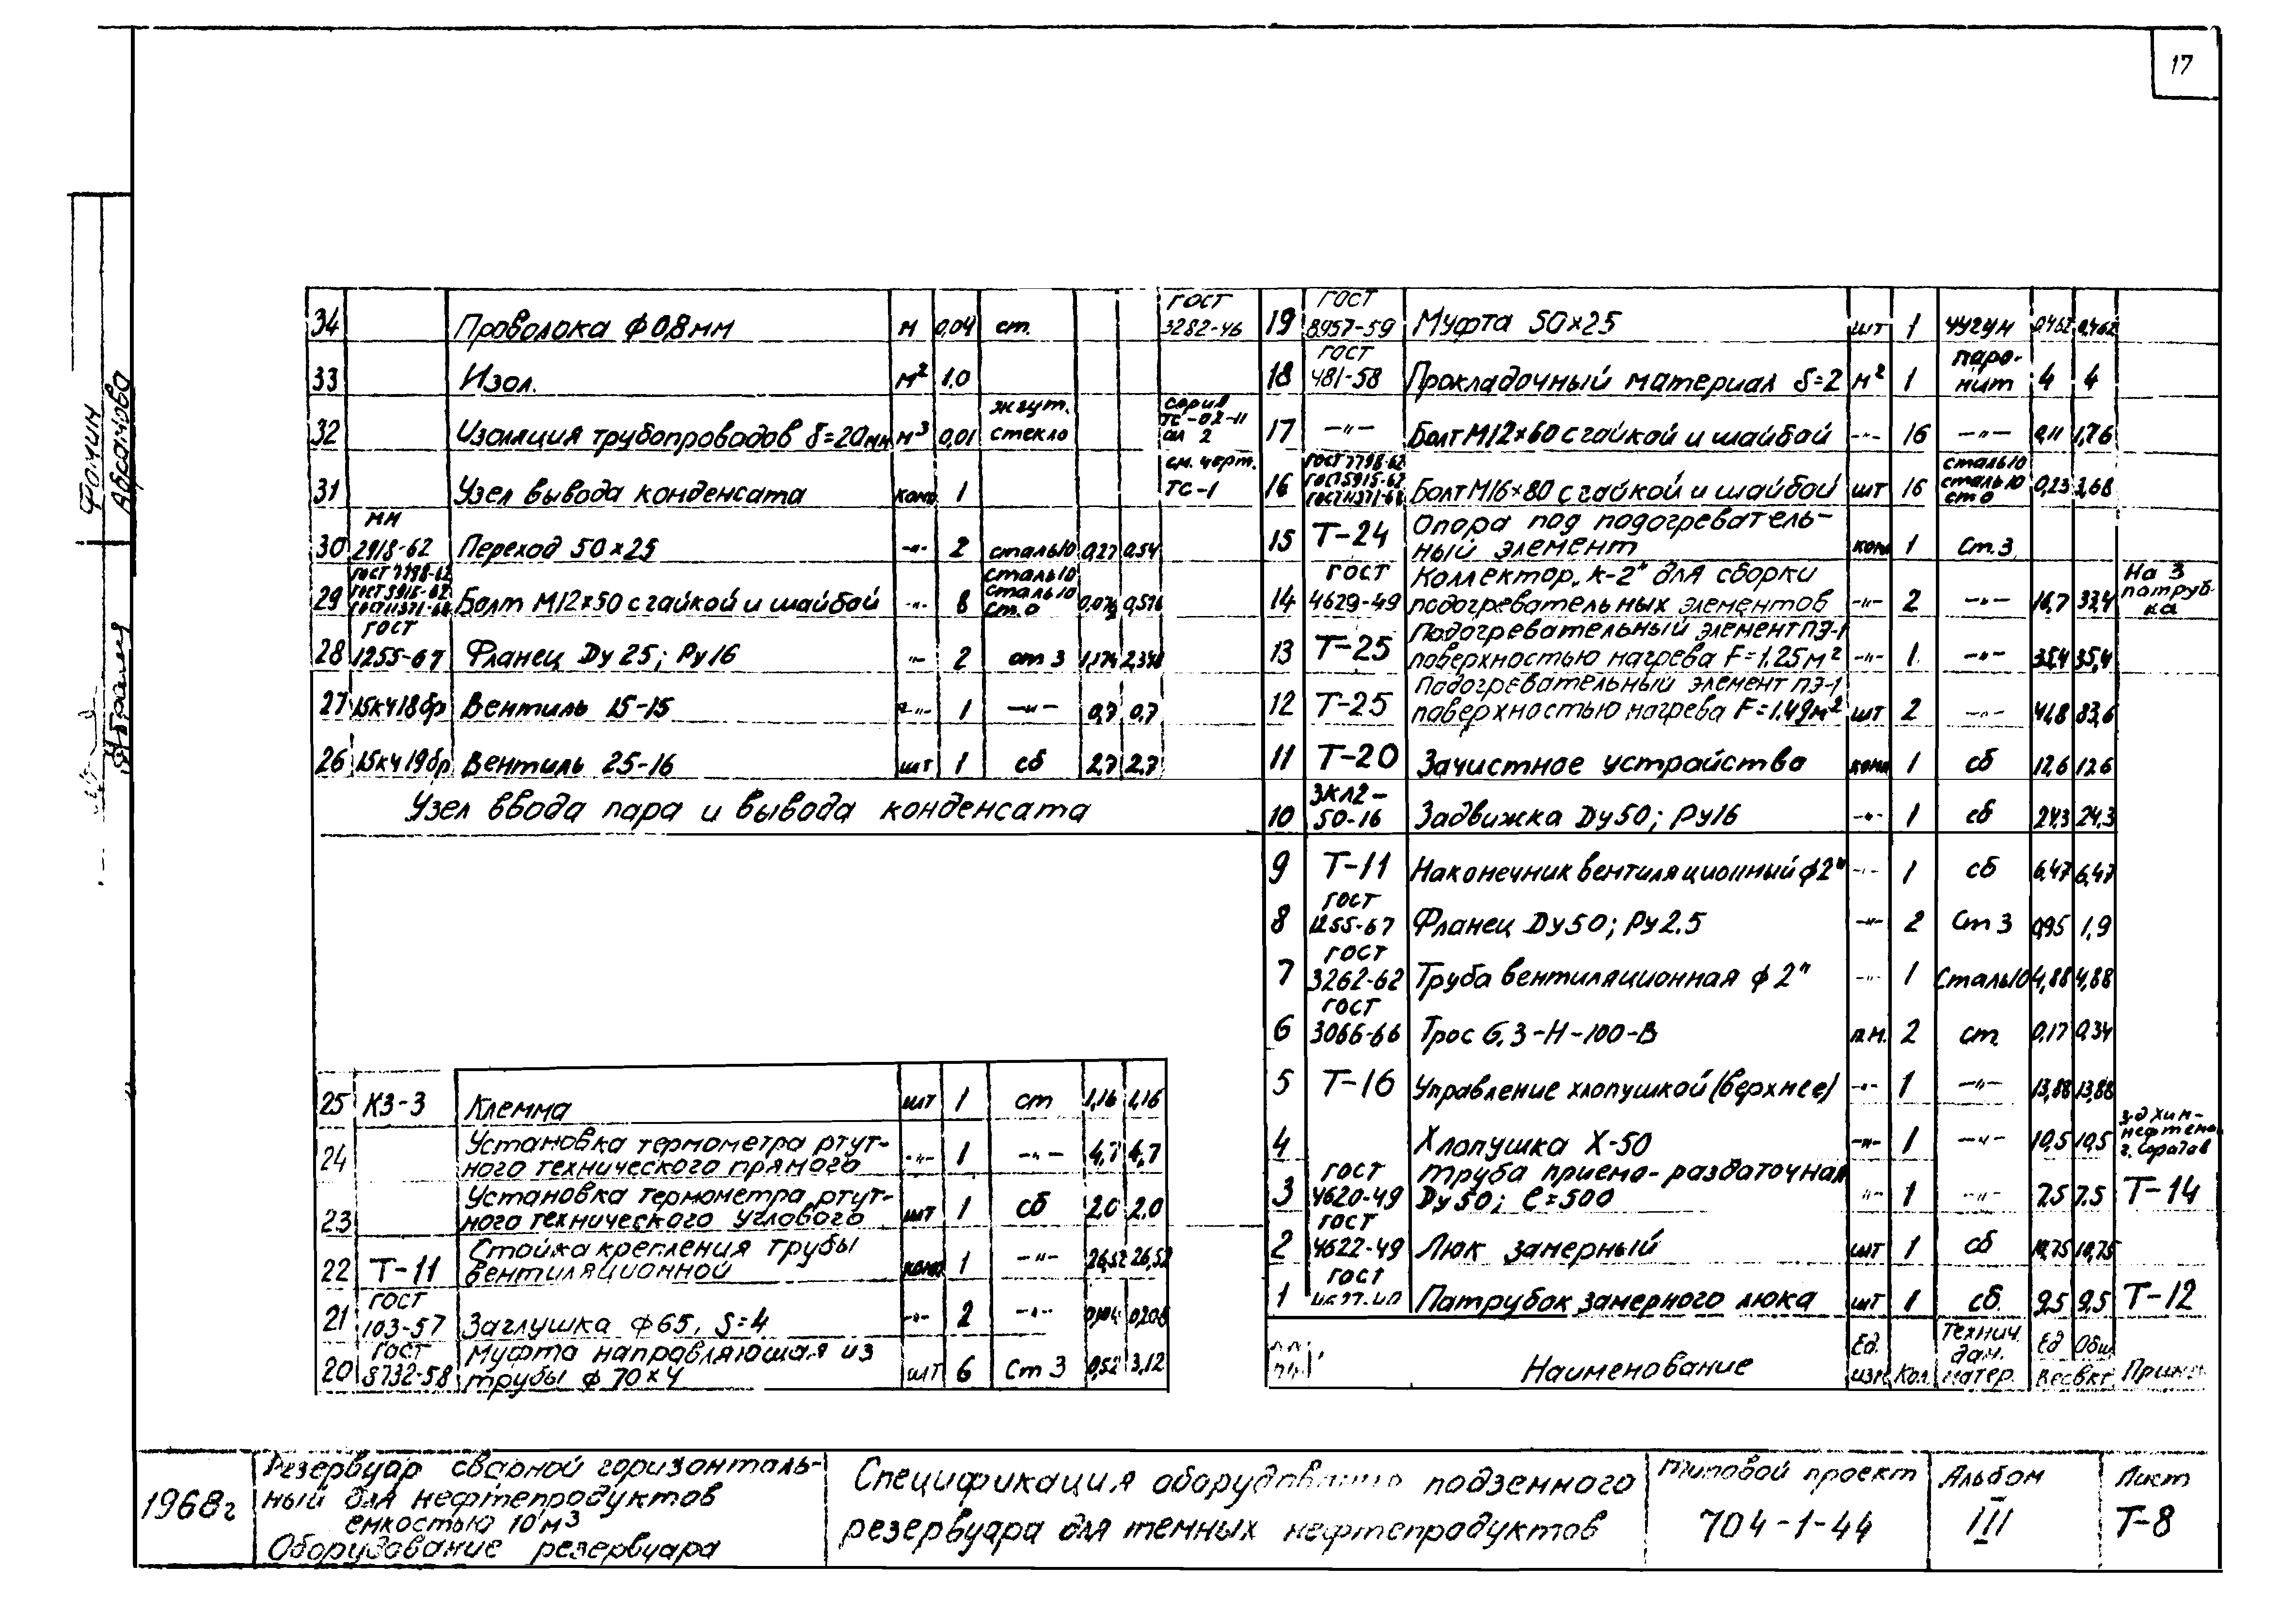 17
34 Проволока ф 0,8мм м 0,04 ст. ГОСТ 3282-46
33 Изол. м² 1.0
32 Изоляция трубопроводов δ=20мм м³ 0,01 жгут. стекло серия ТС-02-11 ал 2
31 Узел вывода конденсата комп 1 см. черт. ТС-1
30 МН 2918-62 Переход 50×25 -"- 2 сталь10 0,27 0,54
29 ГОСТ 7798-62 ГОСТ 5915-62 ГОСТ 11371-68 Болт М12×50 с гайкой и шайбой -"- 8 сталь10 сталь10 ст.0 0,072 0,576
28 ГОСТ 1255-67 Фланец Dу 25; Ру16 -"- 2 ст 3 1,174 2,348
27 15кч18бр Вентиль 15-15 -"- 1 -"- 0,7 0,7
26 15кч19бр Вентиль 25-16 шт 1 сб 2,7 2,7
Узел ввода пара и вывода конденсата
25 КЗ-3 Клемма шт 1 ст 1,16 1,16
24 Установка термометра ртут-
ного технического прямого -"- 1 -"- 4,7 4,7
23 Установка термометра ртут-
ного технического углового шт 1 сб 2.0 2.0
22 Т-11 Стойка крепления трубы
вентиляционной комп 1 -"- 26,52 26,52
21 ГОСТ 103-57 Заглушка ф65, S=4 -"- 2 -"- 0,104 0,208
20 ГОСТ 8732-58 Муфта направляющая из
трубы ф 70×4 шт 6 Ст 3 0,52 3,12
19 ГОСТ 8957-59 Муфта 50×25 шт 1 чугун 0,462 0,462
18 ГОСТ 481-58 Прокладочный материал δ=2 м² 1 паро-
нит 4 4
17 -"- Болт М12×60 с гайкой и шайбой -"- 16 -"- 0,11 1,76
16 ГОСТ 7798-62 ГОСТ 5915-62 ГОСТ 11371-68 Болт М16×80 с гайкой и шайбой шт 16 сталь10 сталь10 ст 0 0,23 3,68
15 Т-24 Опора под подогреватель-
ный элемент комп 1 Ст.3
14 ГОСТ 4629-49 Коллектор „К-2" для сборки
подогревательных элементов -"- 2 -"- 16,7 33,4 На 3 патруб-
ка
13 Т-25 Подогревательный элемент ПЭ-1
поверхностью нагрева F=1.25м² -"- 1 -"- 35,4 35,4
12 Т-25 Подогревательный элемент ПЭ-1
поверхностью нагрева F=1.49м² шт 2 -"- 41,8 83,6
11 Т-20 Зачистное устройство комп 1 сб 12,6 12.6
10 ЗКЛ2-
50-16 Задвижка Dу50; Ру16 -"- 1 сб 24,3 24,3
9 Т-11 Наконечник вентиляционный ф2" -"- 1 сб 6,47 6,47
8 ГОСТ 1255-67 Фланец Dу50; Ру2.5 -"- 2 Ст 3 0,95 1,9
7 ГОСТ 3262-62 Труба вентиляционная ф 2" -"- 1 Сталь10 4,88 4,88
6 ГОСТ 3066-66 Трос 6.3-Н-100-В п.м. 2 ст 0,17 0,34
5 Т-16 Управление хлопушкой (верхнее) -"- 1 -"- 13,88 13,88
4 Хлопушка Х-50 -"- 1 -"- 10,5 10,5 г. Саратов
3 ГОСТ 4620-49 Труба приемо-раздаточная
Dу 50; ℓ=500 -"- 1 -"- 7.5 7.5 Т-14
2 ГОСТ 4622-49 Люк замерный шт 1 сб 10,75 10,75
1 ГОСТ Патрубок замерного люка шт 1 сб. 9,5 9,5 Т-12
Наименование Ед. изм. Кол. Технич. дан. матер. Ед Общ Вес в кг. Примеч
Фомин
Абсамова
1968г
Резервуар сварной горизонталь-
ный для нефтепродуктов
емкостью 10м³
Оборудование резервуара
Спецификация оборудования подземного
резервуара для темных нефтепродуктов
Типовой проект
704-1-44
Альбом
III
Лист
Т-8